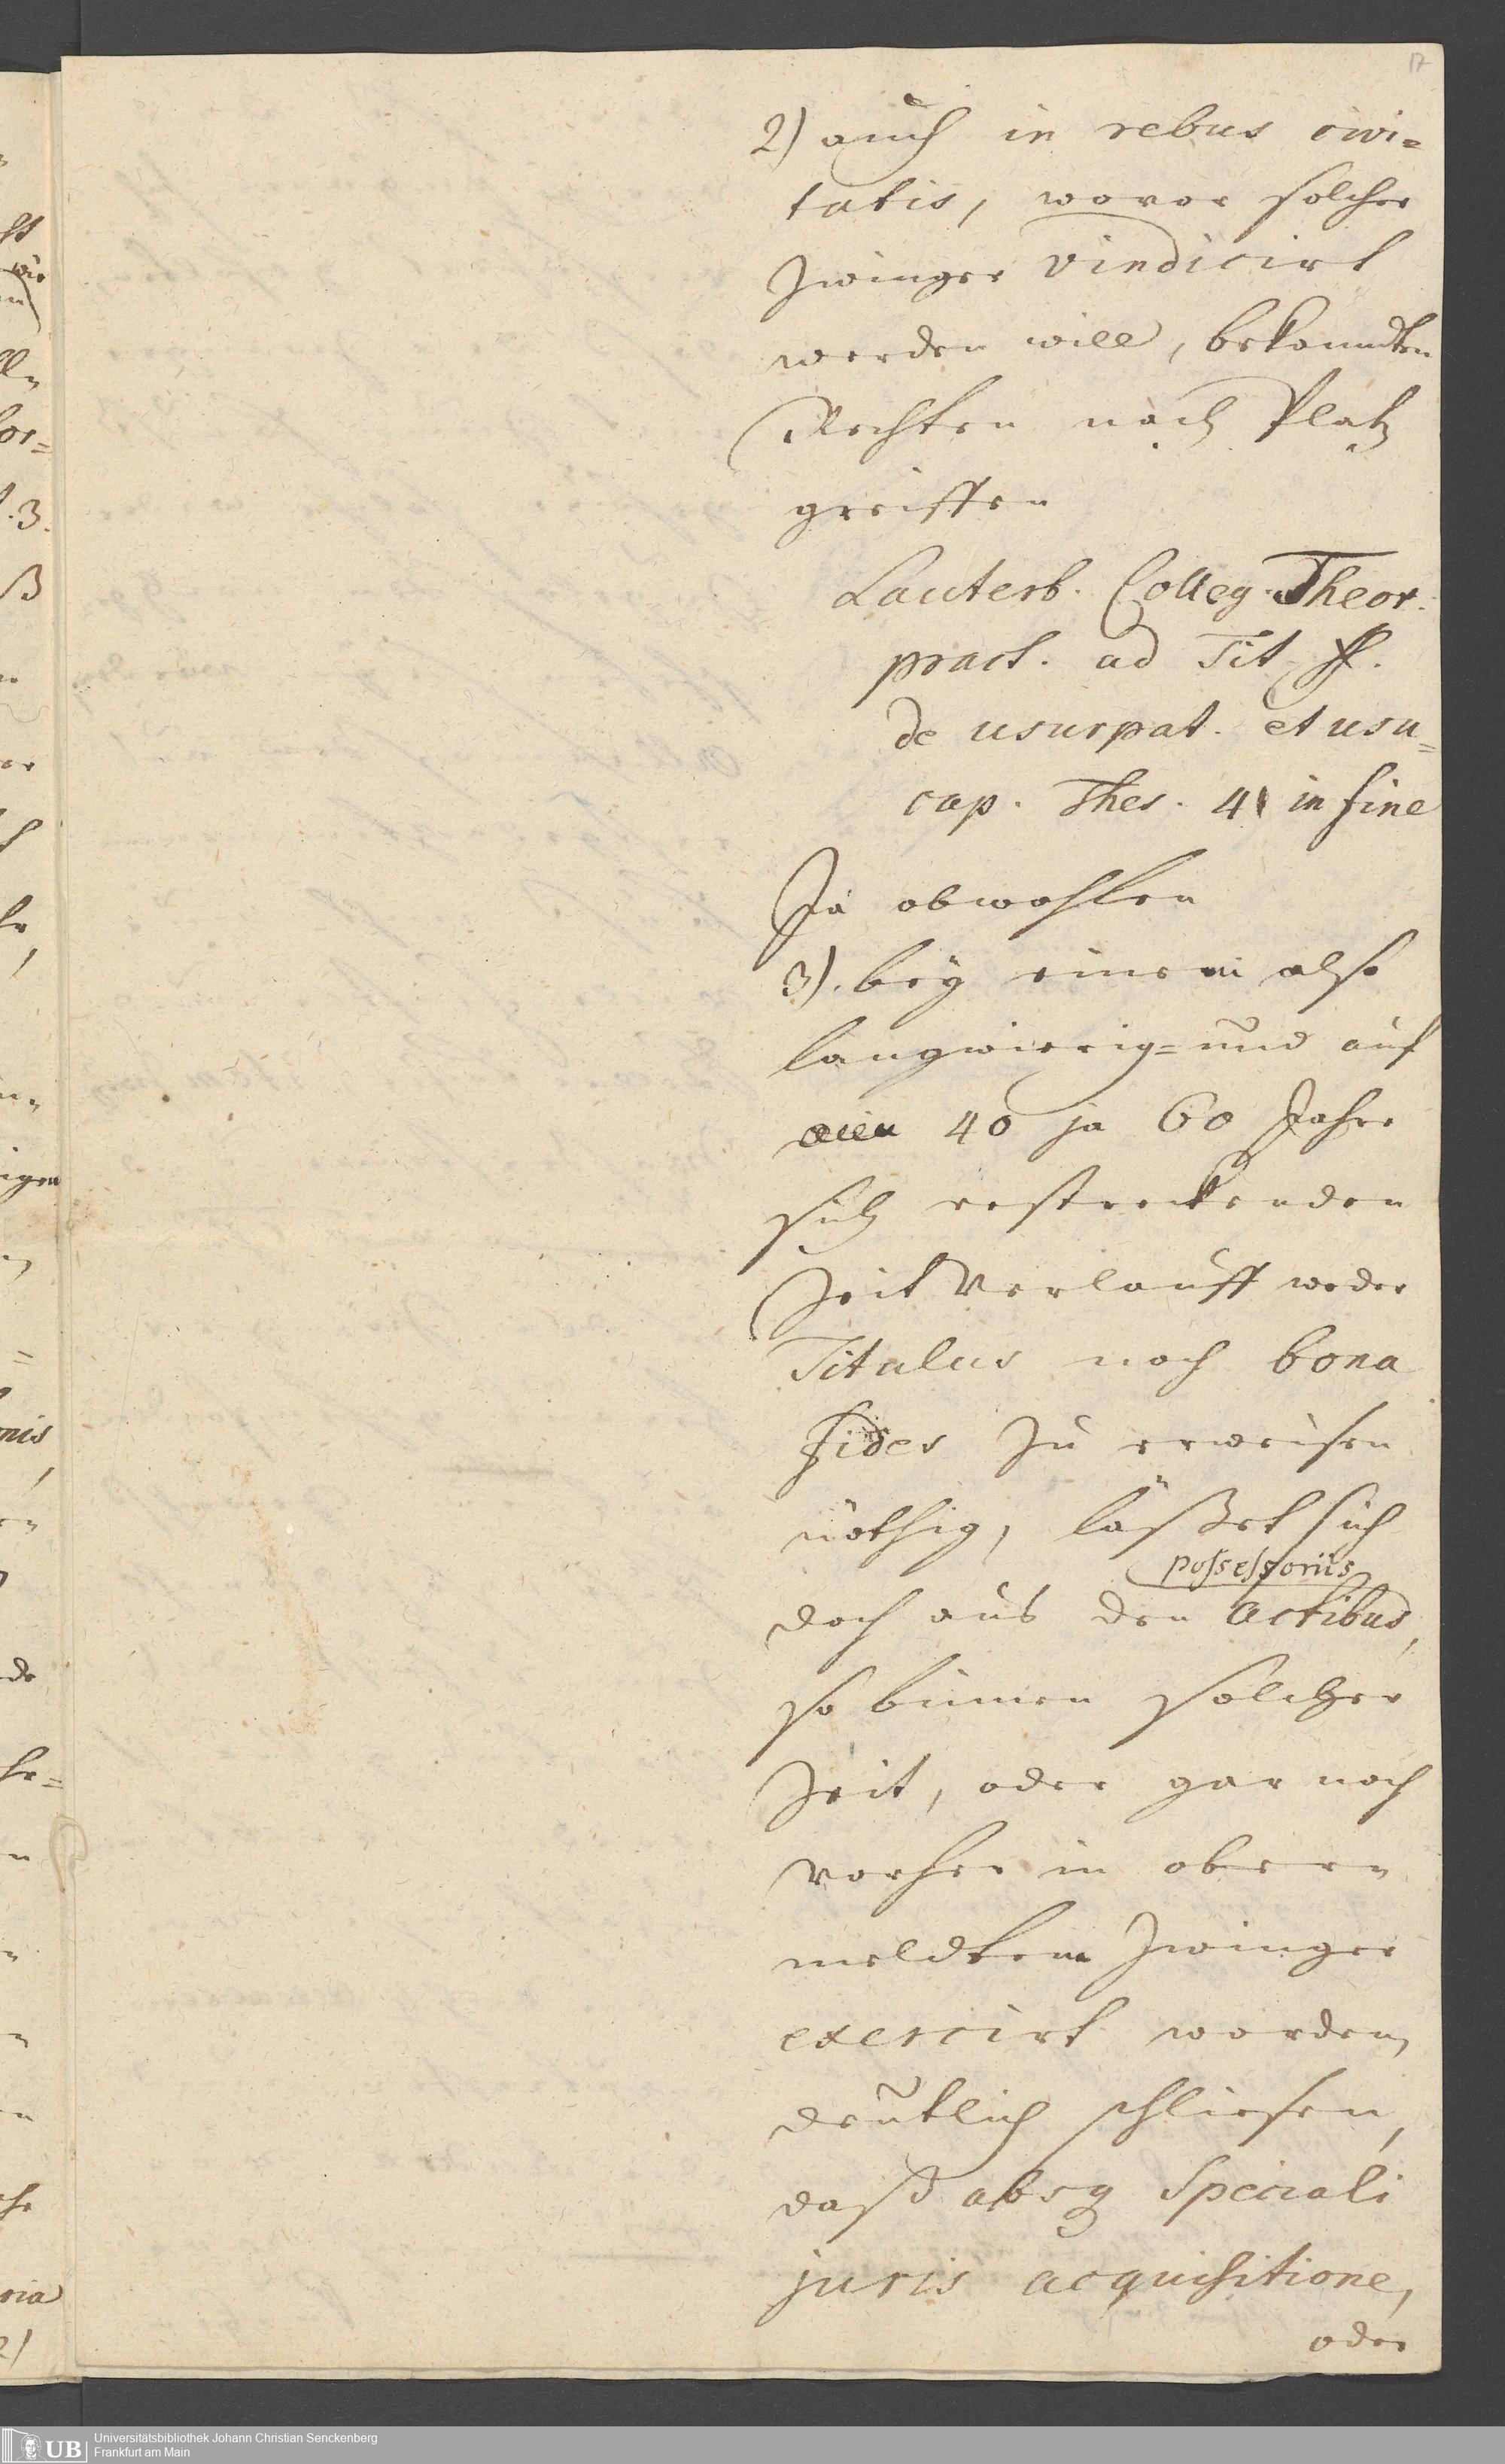 17
2) auch in rebus civi=
tatis, wovor solcher
Zwinger vindicirt
werden will, bekanndten
Rechten nach Platz
greiffen
Lauterb. Colleg. Theor.
pract. ad Tit. ff.
de usurpat. et usu=
cap. Thes. 41 in fine
Ja obwohlen
3). bey einem also
langwierig= und auf
40 ja 60 Jahre
sich erstreckenden
Zeit Verlauff weder
Titulus noch bona
fides zu erweisen
nöthig, läßet sich
possessoriis
doch aus den actibus,
so binnen solcher
Zeit, oder gar noch
vorher in oberm
meldtem Zwinger
exercirt worden,
deutlich schliesen,
daß absq Speciali
juris acquisitione,
oder
UB
Universitätsbibliothek Johann Christian Senckenberg
Frankfurt am Main